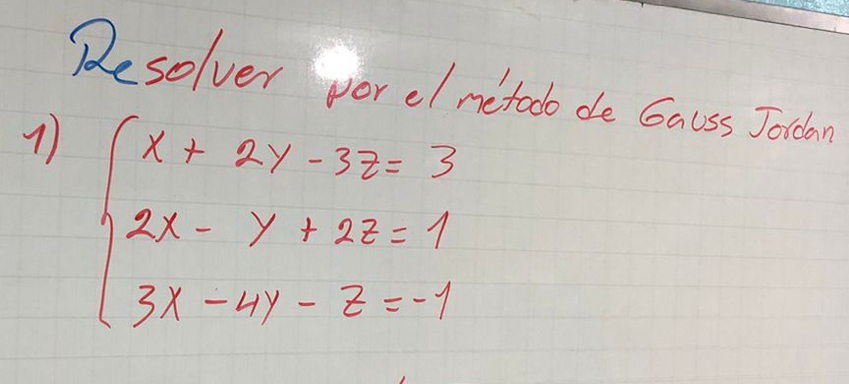 Resolver por el método de Gauss Jordan
1) x + 2y - 3z = 3
2x - y + 2z = 1
3x - 4y - z = -1